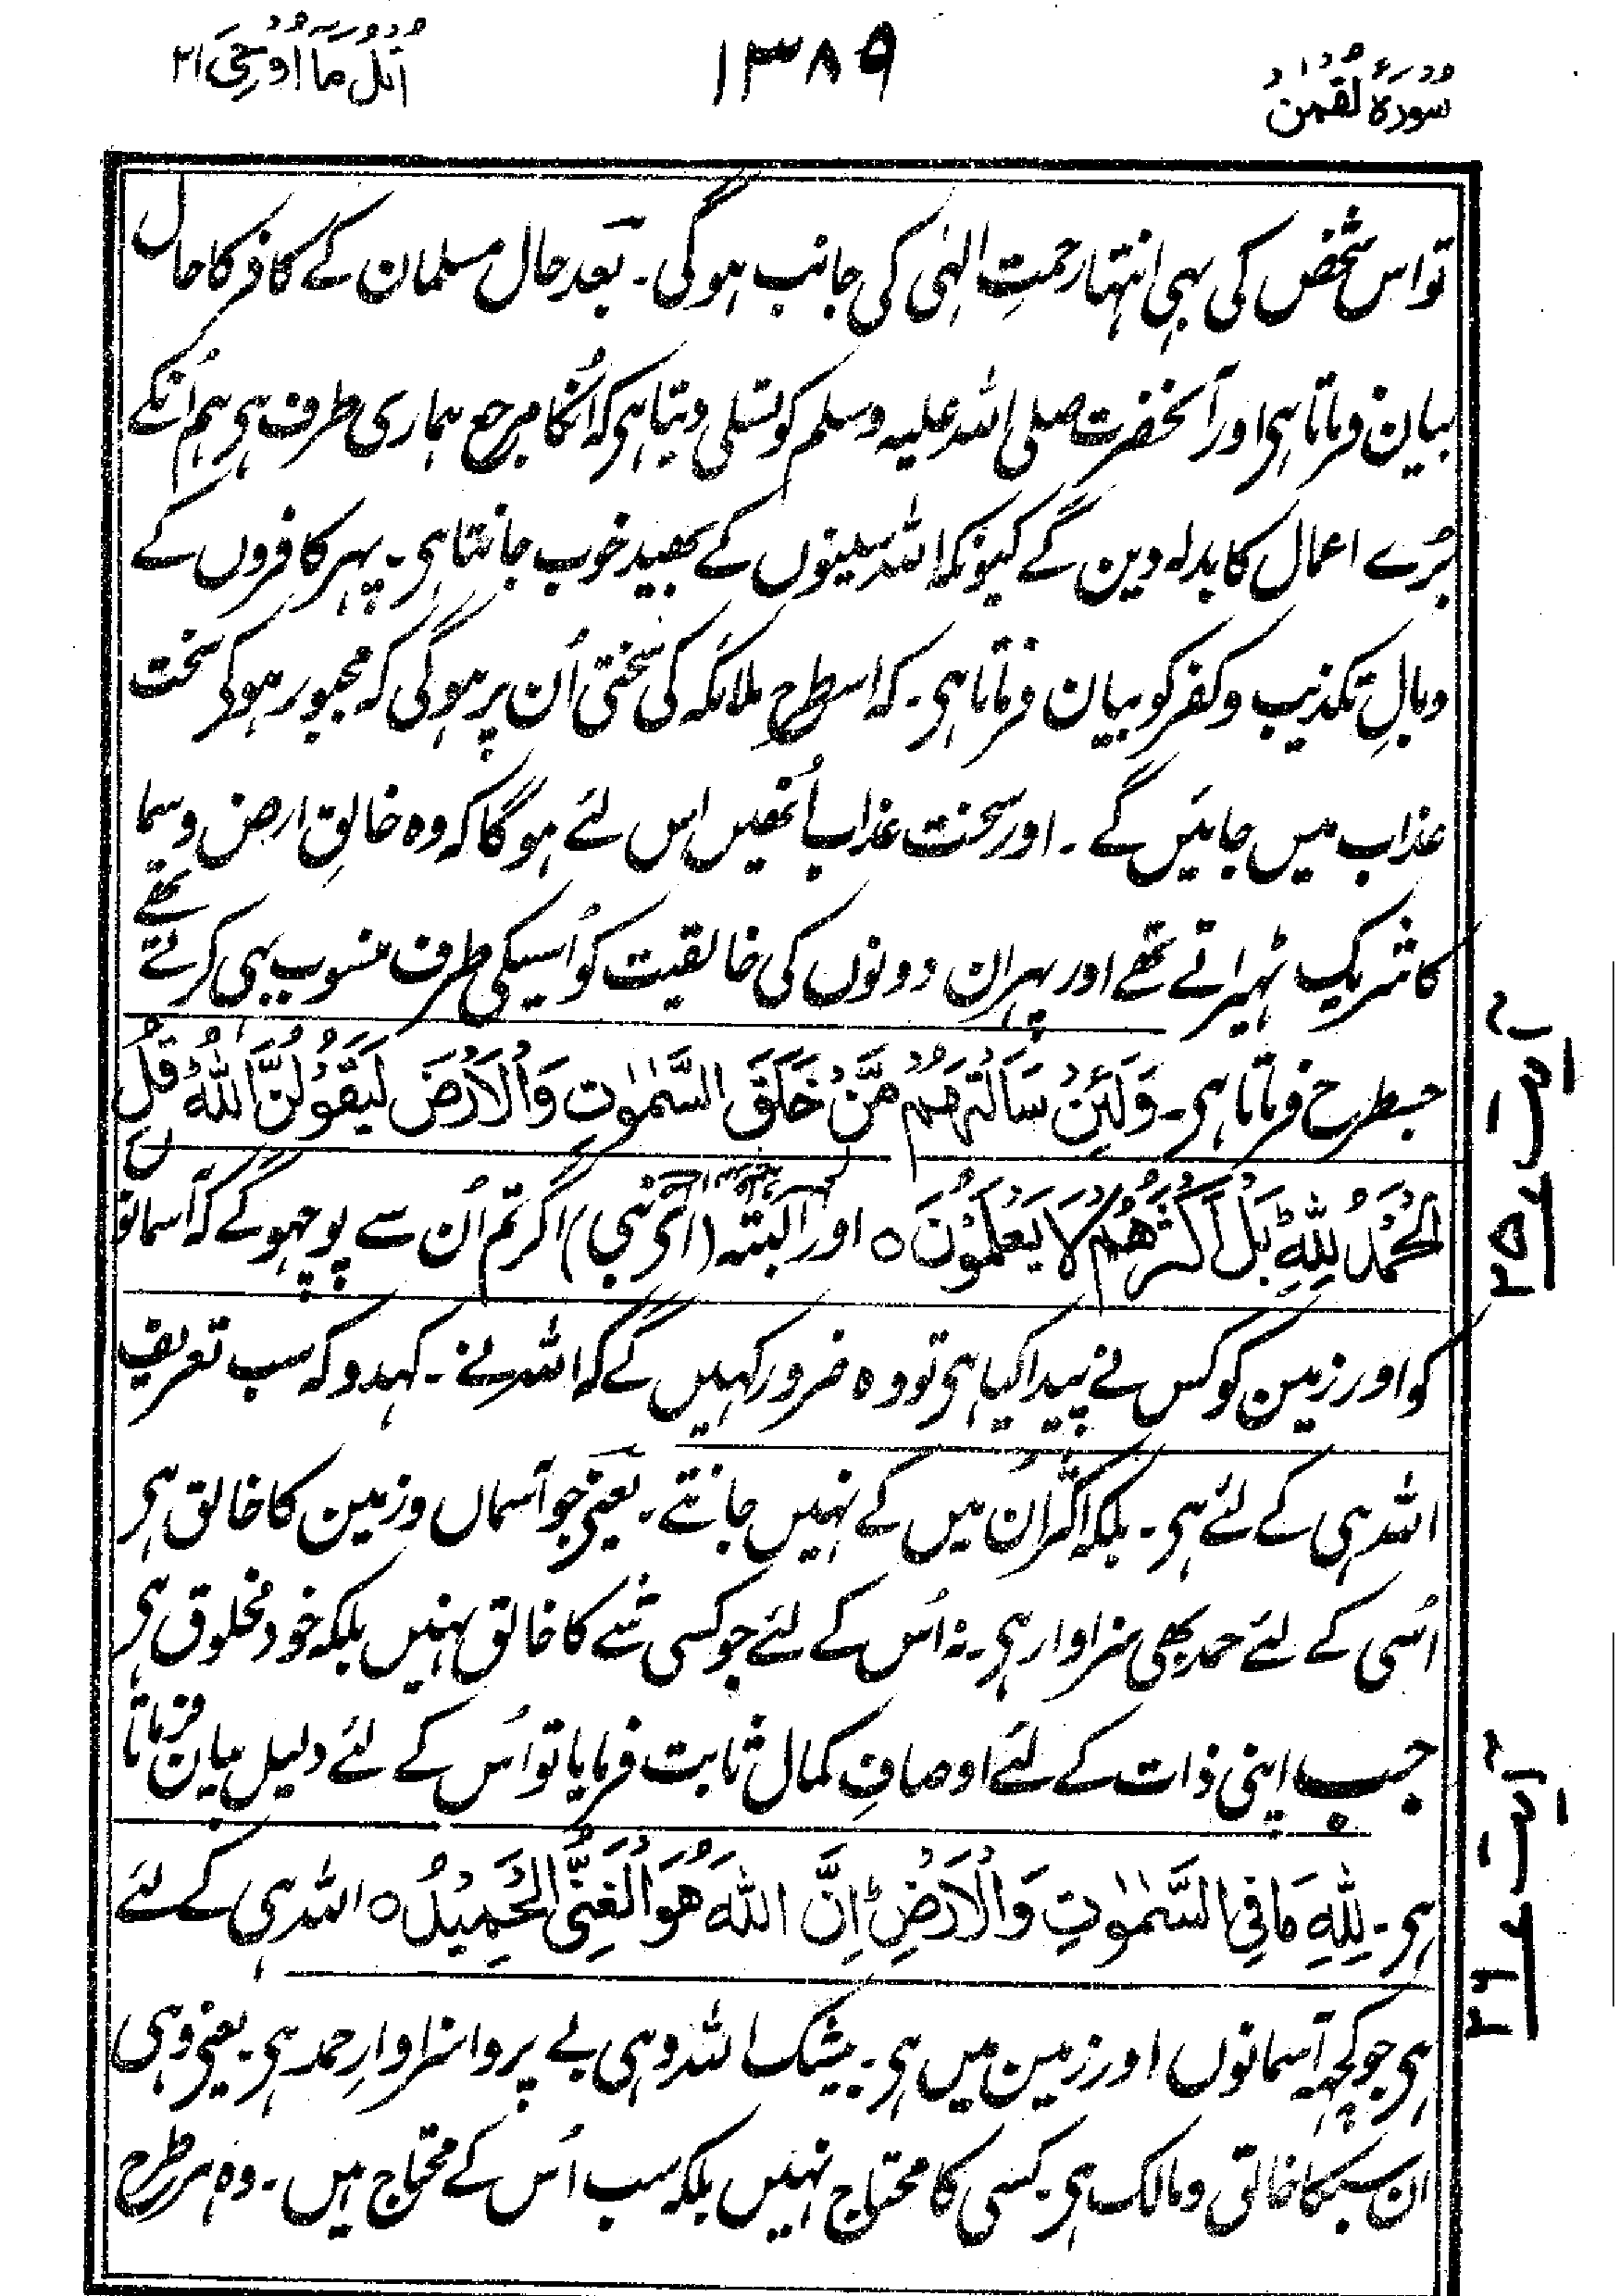 سورۂ لقمٰن
١٣٨٩
اُتْلُ مَآ اُوْحِيَ ٢١
تو اس شخص کی بہی انتہا رحمتِ الہٰی کی جانب ہو گی۔ بعد حال مسلمان کے کافر کا حال
بیان فرماتا ہی اور آنحضرت صلی اللہ علیہ وسلم کو تسلی دیتا ہی کہ اُنکا مرجع ہماری طرف ہی ہم اُنکے
بُرے اعمال کا بدلہ دین گے کیونکہ اللہ سینوں کے بھید خوب جانتا ہی۔ پہر کافروں کے
وبالِ تکذیب و کفر کو بیان فرماتا ہی۔ کہ اسطرح ملائکہ کی سختی اُن پر ہو گی کہ مجبور ہو کر سخت
عذاب میں جائیں گے۔ اور سخت عذاب اُنھیں اس لئے ہو گا کہ وہ خالقِ ارض و سما
کا شریک ٹہیراتے تھے اور پہر ان دونوں کی خالقیت کو اُسیکی طرف منسوب بہی کرتے تھے
جسطرح فرماتا ہی۔ وَلَئِنْ سَاَلْتَهُمْ مَّنْ خَلَقَ السَّمٰوٰتِ وَالْاَرْضَ لَيَقُوْلُنَّ اللّٰهُ قُلِ
الْحَمْدُ لِلّٰهِ بَلْ اَكْثَرُهُمْ لَا يَعْلَمُوْنَ ٥ اور البتہ (اَی نبی) اگر تم اُن سے پوچہو گے کہ آسمانوں
کو اور زمین کو کس نے پیدا کیا ہی تو وہ ضرور کہیں گے کہ اللہ نے۔ کہدو کہ سب تعریف
اللہ ہی کے لئے ہی۔ بلکہ اکثر اُن میں کے نہیں جانتے۔ یعنی جو آسماں و زمین کا خالق ہی
اُسی کے لئے حمد بھی سزاوار ہی۔ نہ اُس کے لئے جو کسی شے کا خالق نہیں بلکہ خود مخلوق ہی
جب اپنی ذات کے لئے اوصافِ کمال ثابت فرمایا تو اُس کے لئے دلیل بیان فرماتا
ہی۔ لِلّٰهِ مَا فِي السَّمٰوٰتِ وَالْاَرْضِ اِنَّ اللّٰهَ هُوَ الْغَنِيُّ الْحَمِيْدُ ٥ اللہ ہی کے لئے
ہی جو کچھ آسمانوں اور زمین میں ہی۔ بیشک اللہ وہی بے پروا سزاوارِ حمد ہی۔ یعنی وہی
ان سبکا خالق و مالک ہی۔ کسی کا محتاج نہیں بلکہ سب اُس کے محتاج ہیں۔ وہ ہر طرح
آیت ٢٥
آیت ٢٦